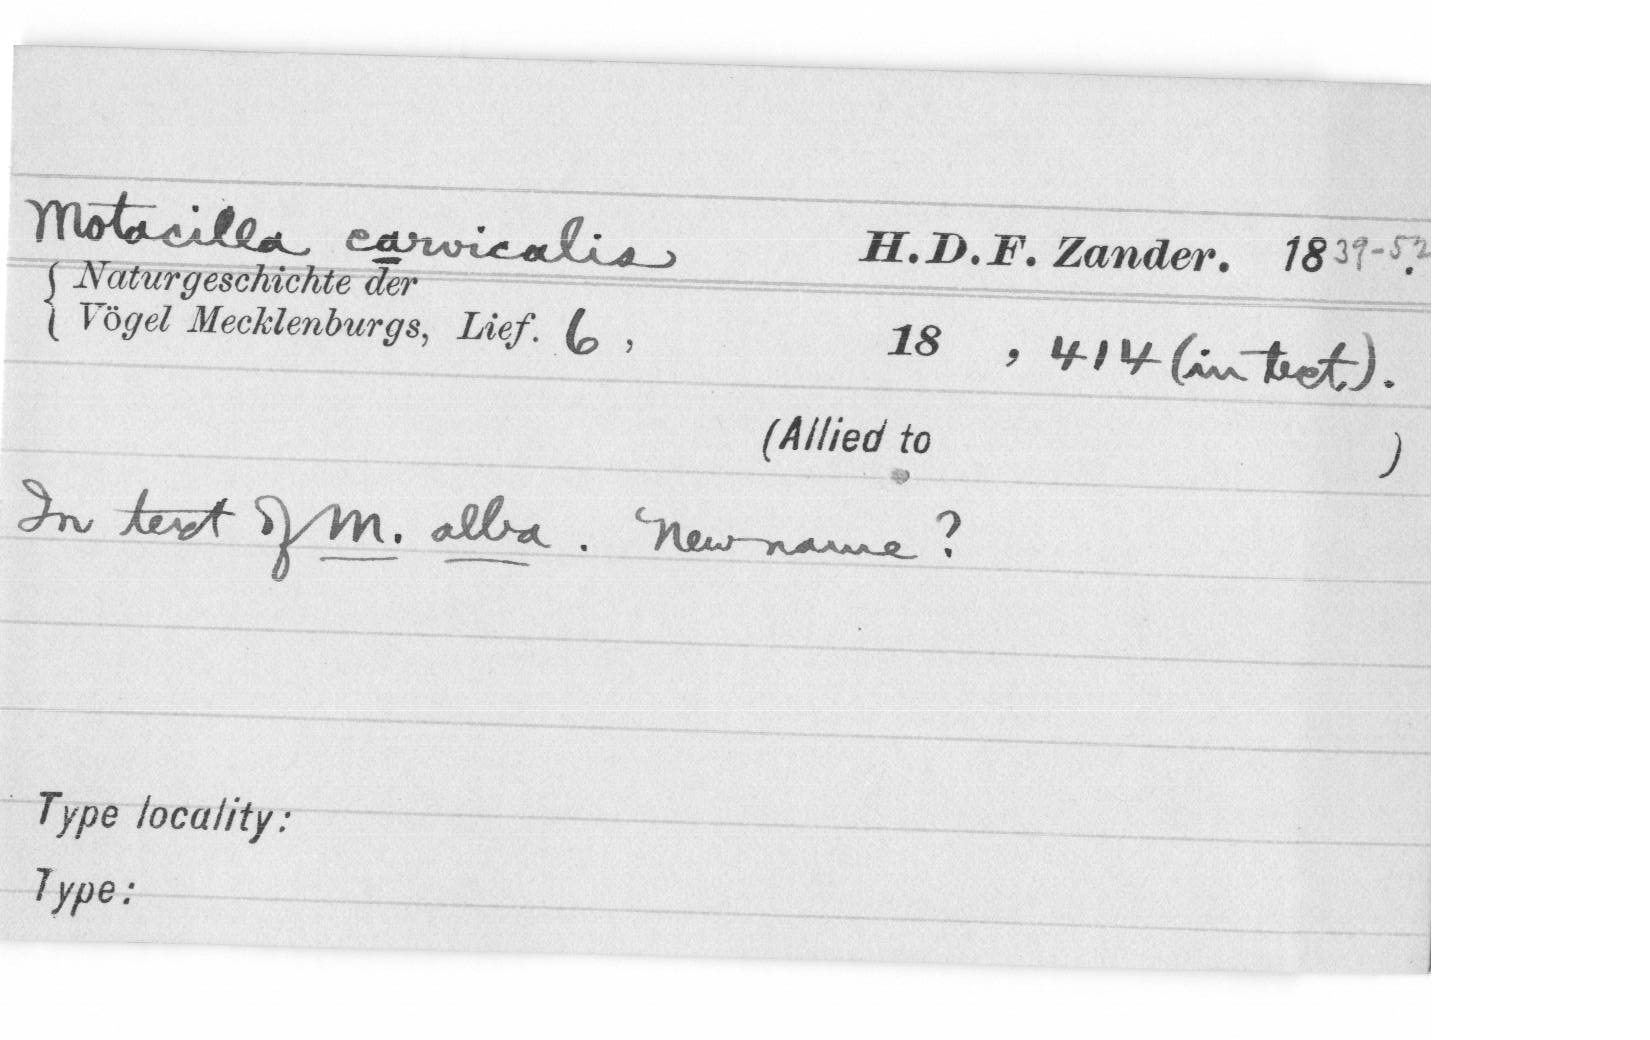 Motacilla carvicalis H.D.F. Zander. 1839-52.
{ Naturgeschichte der
Vögel Mecklenburgs, Lief. 6, 18 , 414 (in text.).
(Allied to )
In text of M. alba. New name?
Type locality:
Type: